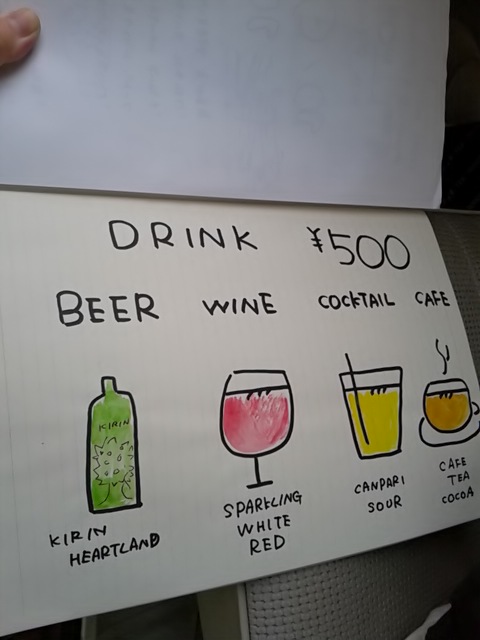 DRINK ¥500
BEER WINE COCKTAIL CAFE
KIRIN
KIRIN
HEARTLAND
SPARKLING
WHITE
RED
CANPARI
SOUR
CAFE
TEA
COCOA